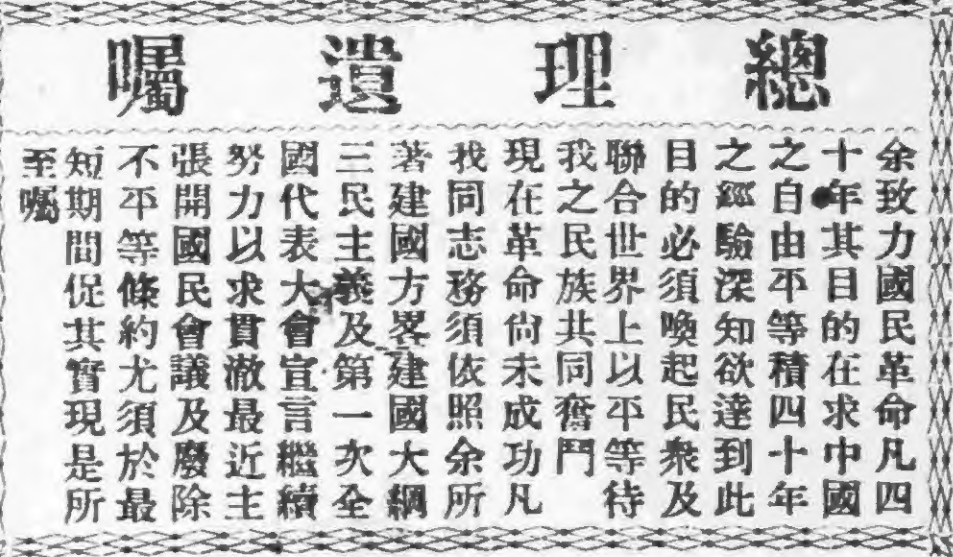 總理遺囑
余致力國民革命凡四
十年其目的在求中國
之自由平等積四十年
之經驗深知欲達到此
目的必須喚起民衆及
聯合世界上以平等待
我之民族共同奮鬥
現在革命尙未成功凡
我同志務須依照余所
著建國方畧建國大綱
三民主義及第一次全
國代表大會宣言繼續
努力以求貫澈最近主
張開國民會議及廢除
不平等條約尤須於最
短期間促其實現是所
至囑